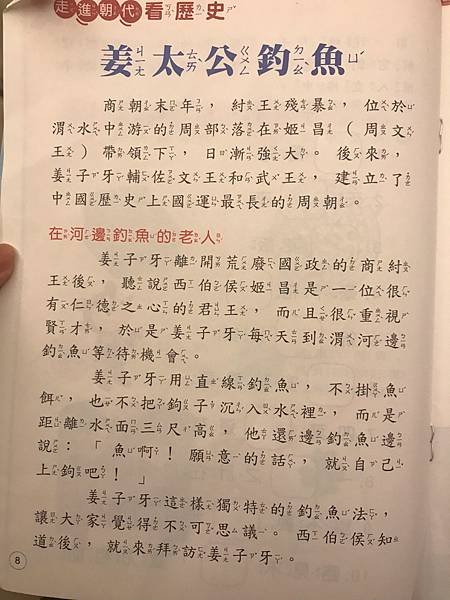 走進朝代看歷史
姜太公釣魚
商朝末年，紂王殘暴，位於
渭水中游的周部落在姬昌（周文
王）帶領下，日漸強大。後來，
姜子牙輔佐文王和武王，建立了
中國歷史上國運最長的周朝。
在河邊釣魚的老人
姜子牙離開荒廢國政的商紂
王後，聽說西伯侯姬昌是一位很
有仁德之心的君王，而且很重視
賢才，於是姜子牙每天到渭河邊
釣魚等待機會。
姜子牙用直線釣魚，不掛魚
餌，也不把鉤子沉入水裡，而是
距離水面三尺高，他還邊釣魚邊
說：「魚啊！願意的話，就自己
上鉤吧！」
姜子牙這樣獨特的釣魚法，
讓大家覺得不可思議。西伯侯知
道後，就來拜訪姜子牙。
8